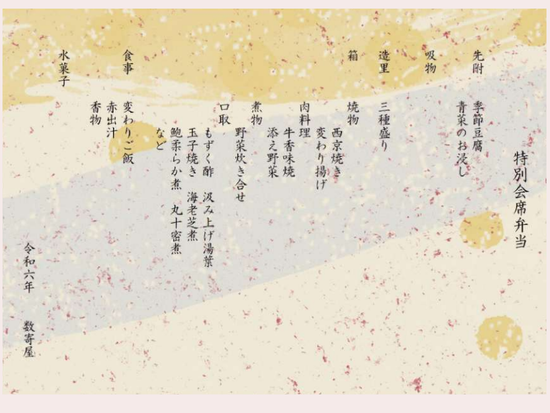 特別会席弁当
先附
季節豆腐
青菜のお浸し
吸物
造里
三種盛り
箱
焼物
西京焼き
変わり揚げ
肉料理
牛香味焼
添え野菜
煮物
野菜炊き合せ
口取
もずく酢 汲み上げ湯葉
玉子焼き 海老芝煮
鮑柔らか煮 丸十密煮
など
食事
変わりご飯
赤出汁
香物
水菓子
令和六年 数寄屋